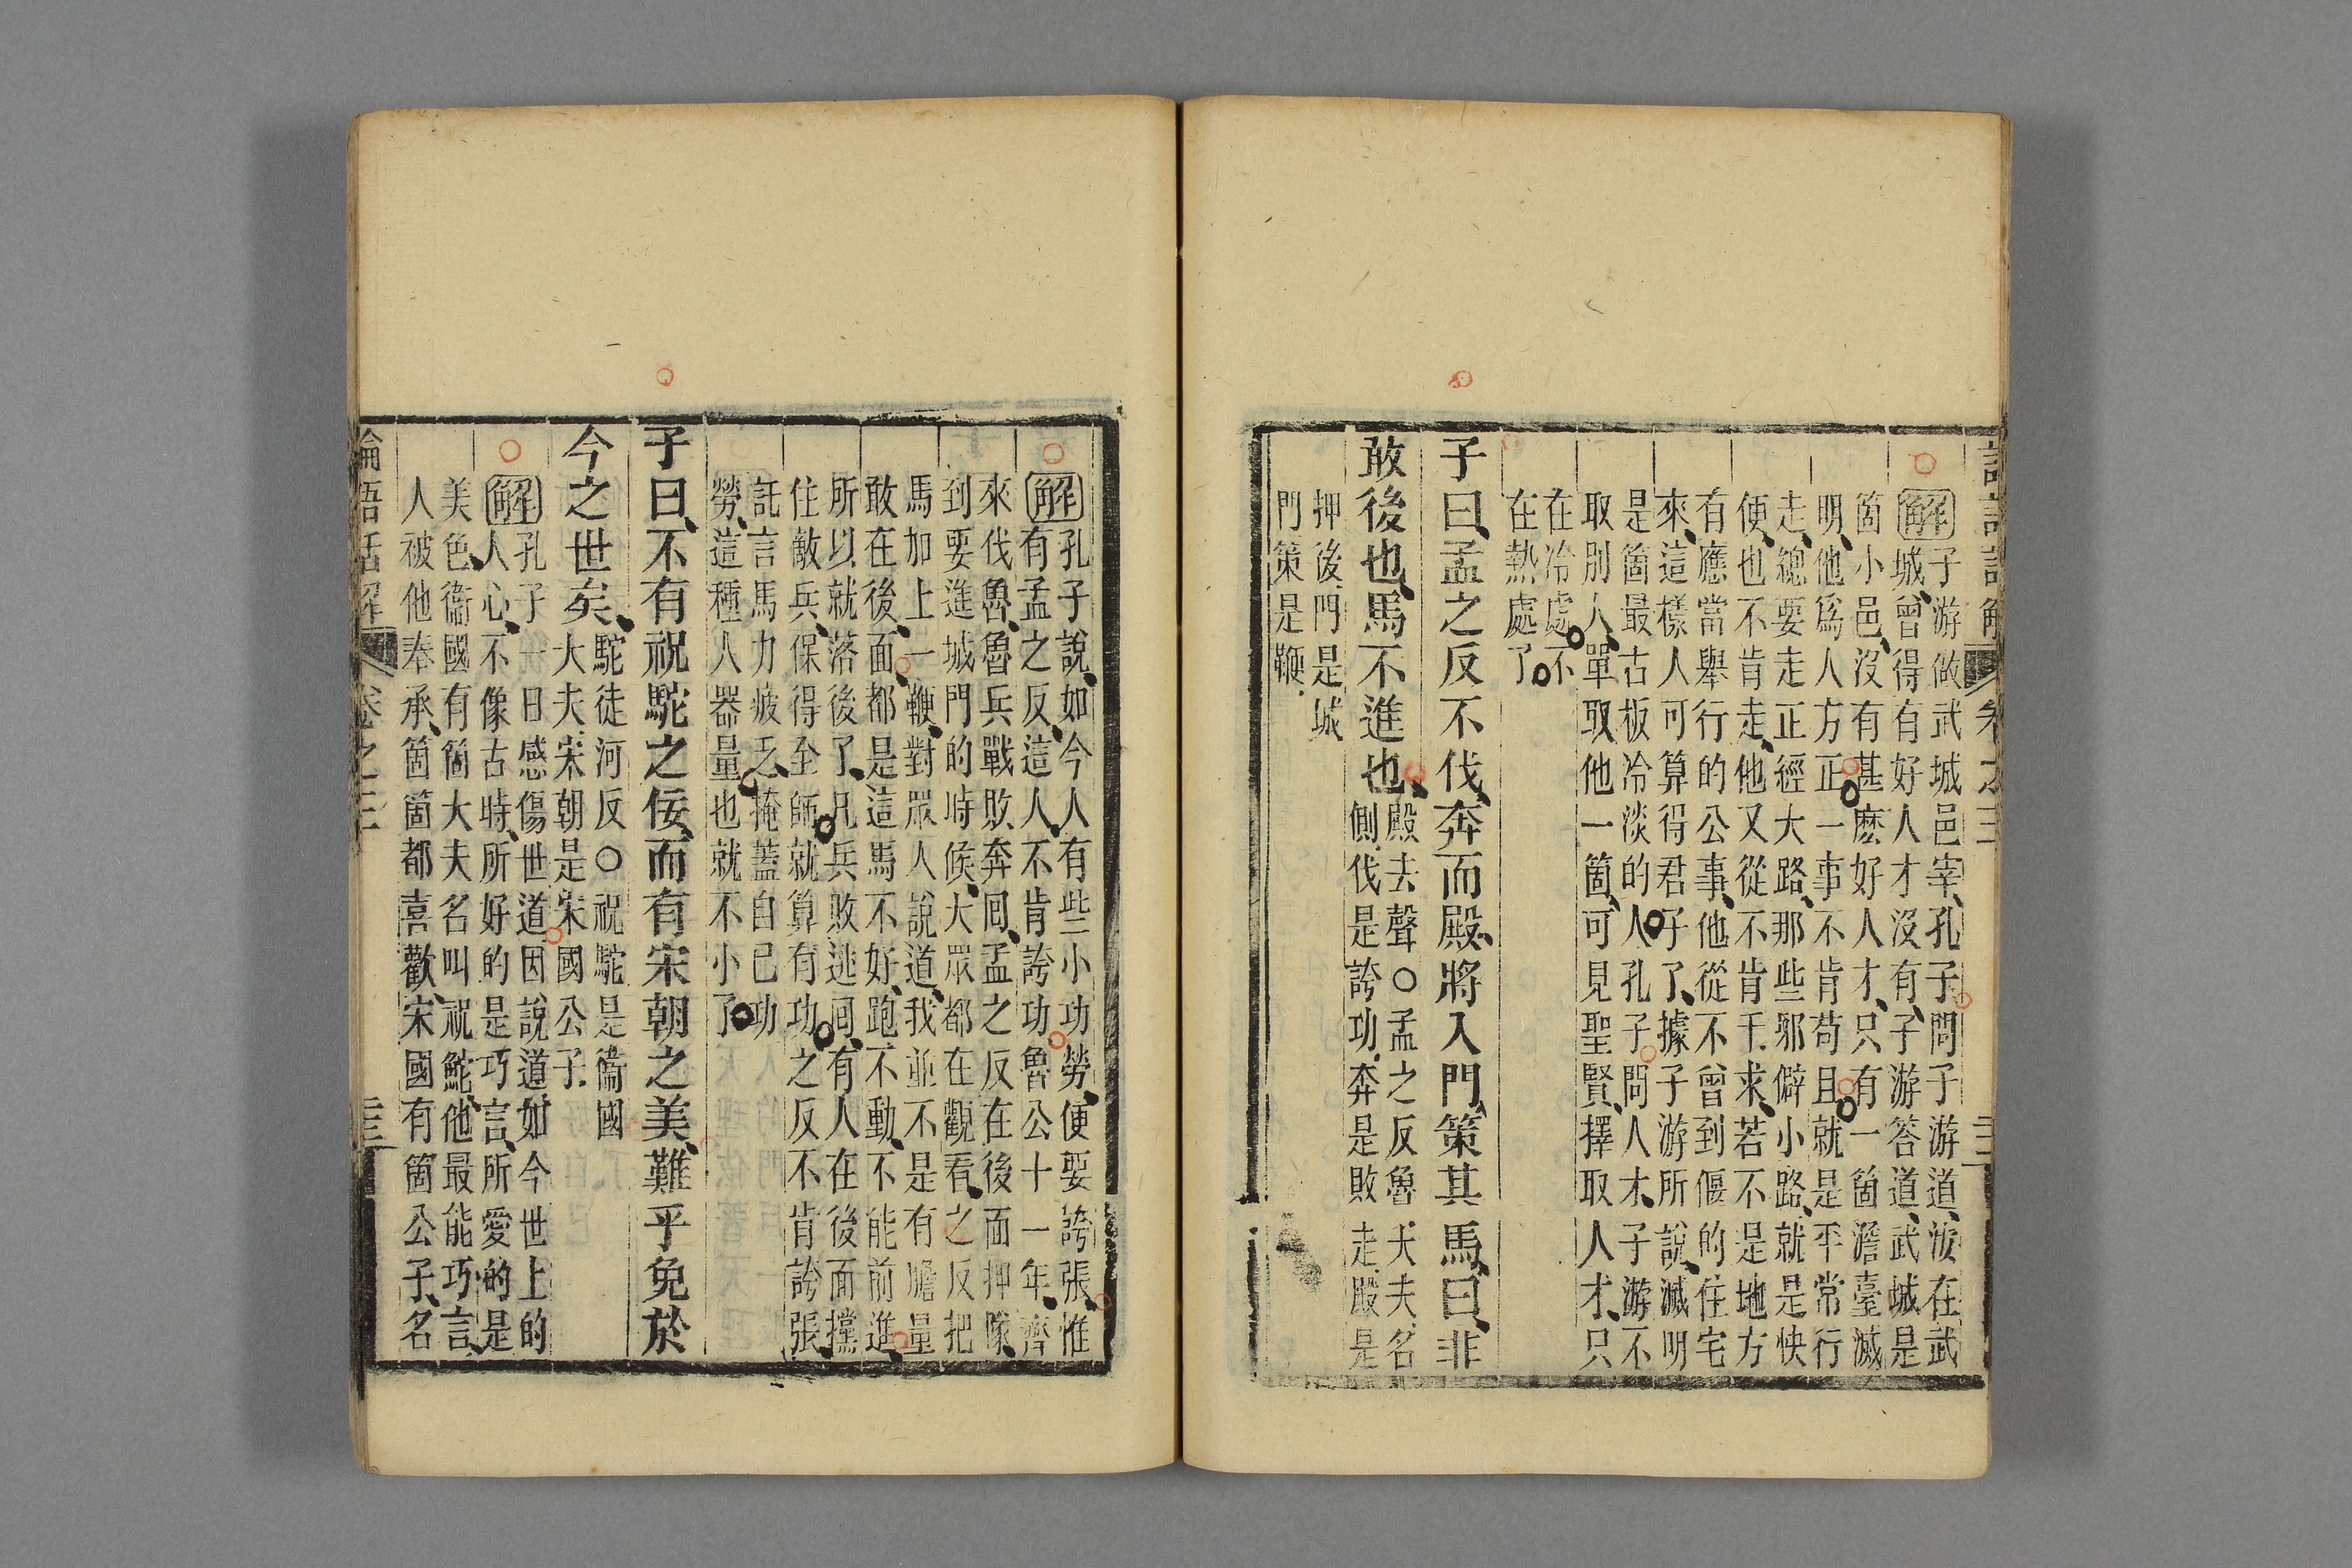 論語話解 卷之三
解 子游做武城邑宰、孔子問子游道、汝在武
城、曾得有好人才沒有、子游答道、武城是
箇小邑、沒有甚麽好人才、只有一箇澹臺滅
明、他爲人方正一事不肯苟且就是平常行
走、總要走正經大路、那些邪僻小路、就是快
便、也不肯走、他又從不肯干求、若不是地方
有應當舉行的公事、他從不曾到偃的住宅
來、這樣人可算得君子了、據子游所說、滅明
是箇最古板冷淡的人孔子問人才、子游不
取別人、單取他一箇、可見聖賢、擇取人才、只
在冷處、不
在熱處了
子曰、孟之反不伐、奔而殿、將入門、策其馬、曰、非
敢後也、馬不進也、
殿去聲○孟之反魯大夫、名
側、伐是誇功、奔是敗走、殿是
押後、門是城
門策是鞭、
解 孔子說、如今人有些小功勞、便要誇張、惟
有孟之反、這人、不肯誇功魯公十一年、齊
來伐魯、魯兵戰敗奔回、孟之反在後面押隊、
到要進城門的時候、大眾都在觀看、之反把
馬加上一鞭、對眾人說道、我並不是有膽量
敢在後面、都是這馬不好、跑不動、不能前進、
所以就落後了、凡兵敗逃回、有人在後面攩
住敵兵、保得全師、就算有功、之反不肯誇張、
託言馬力疲乏、掩蓋自己功
勞、這種人器量也就不小了
子曰、不有祝鮀之佞、而有宋朝之美、難乎免於
今之世矣、
鮀徒河反○祝鮀是衞國
大夫、宋朝是宋國公子、
解 孔子一日感傷世道因說道如今世上的
人心、不像古時、所好的是巧言、所愛的是
美色、衞國有箇大夫名叫祝鮀、他最能巧言、
人被他奉承、箇箇都喜歡、宋國有箇公子、名
論語話解 卷之三